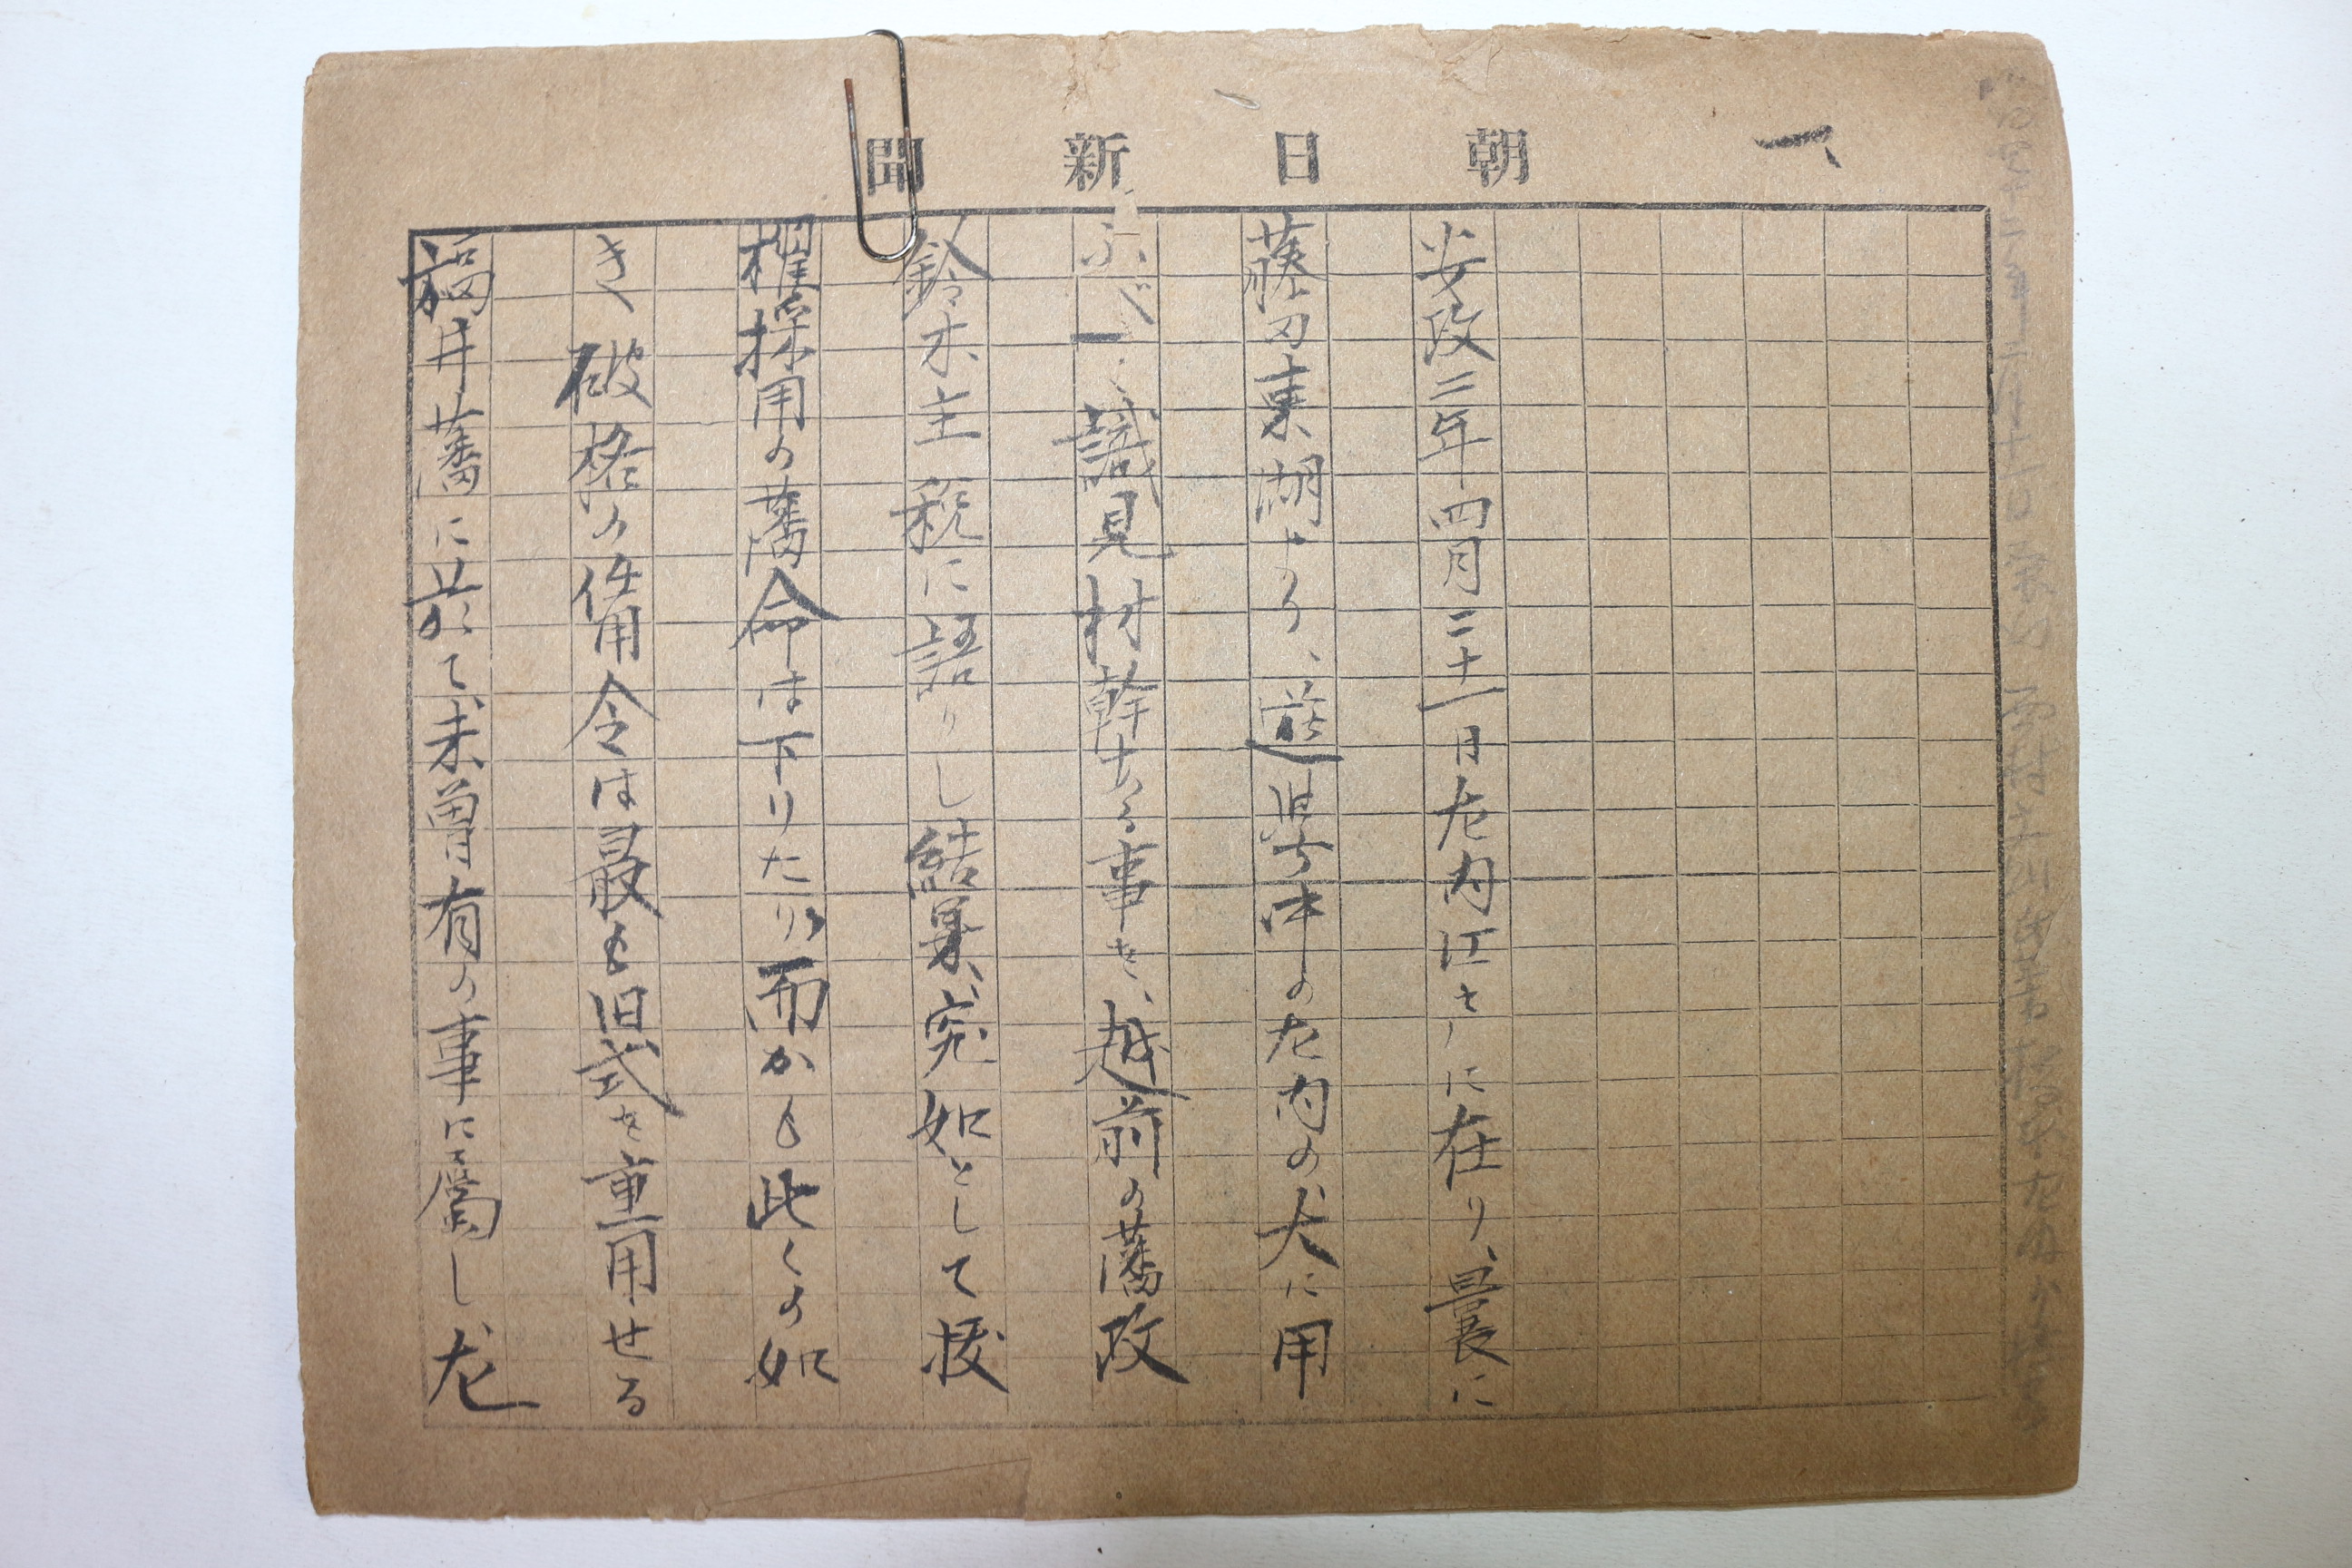 一
朝日新聞
安政三年四月二十一日左内江戸に在り、曩に
藤田東湖より、遊学中の左内の大に用
ふべく識見材幹ある事を、越前の藩政
鈴木主税に語りし結果、突如として抜
擢採用の藩命は下りたり、而かも此くの如
き破格の任用令は最も旧式を重用せる
福井藩に於て未曽有の事に属し左